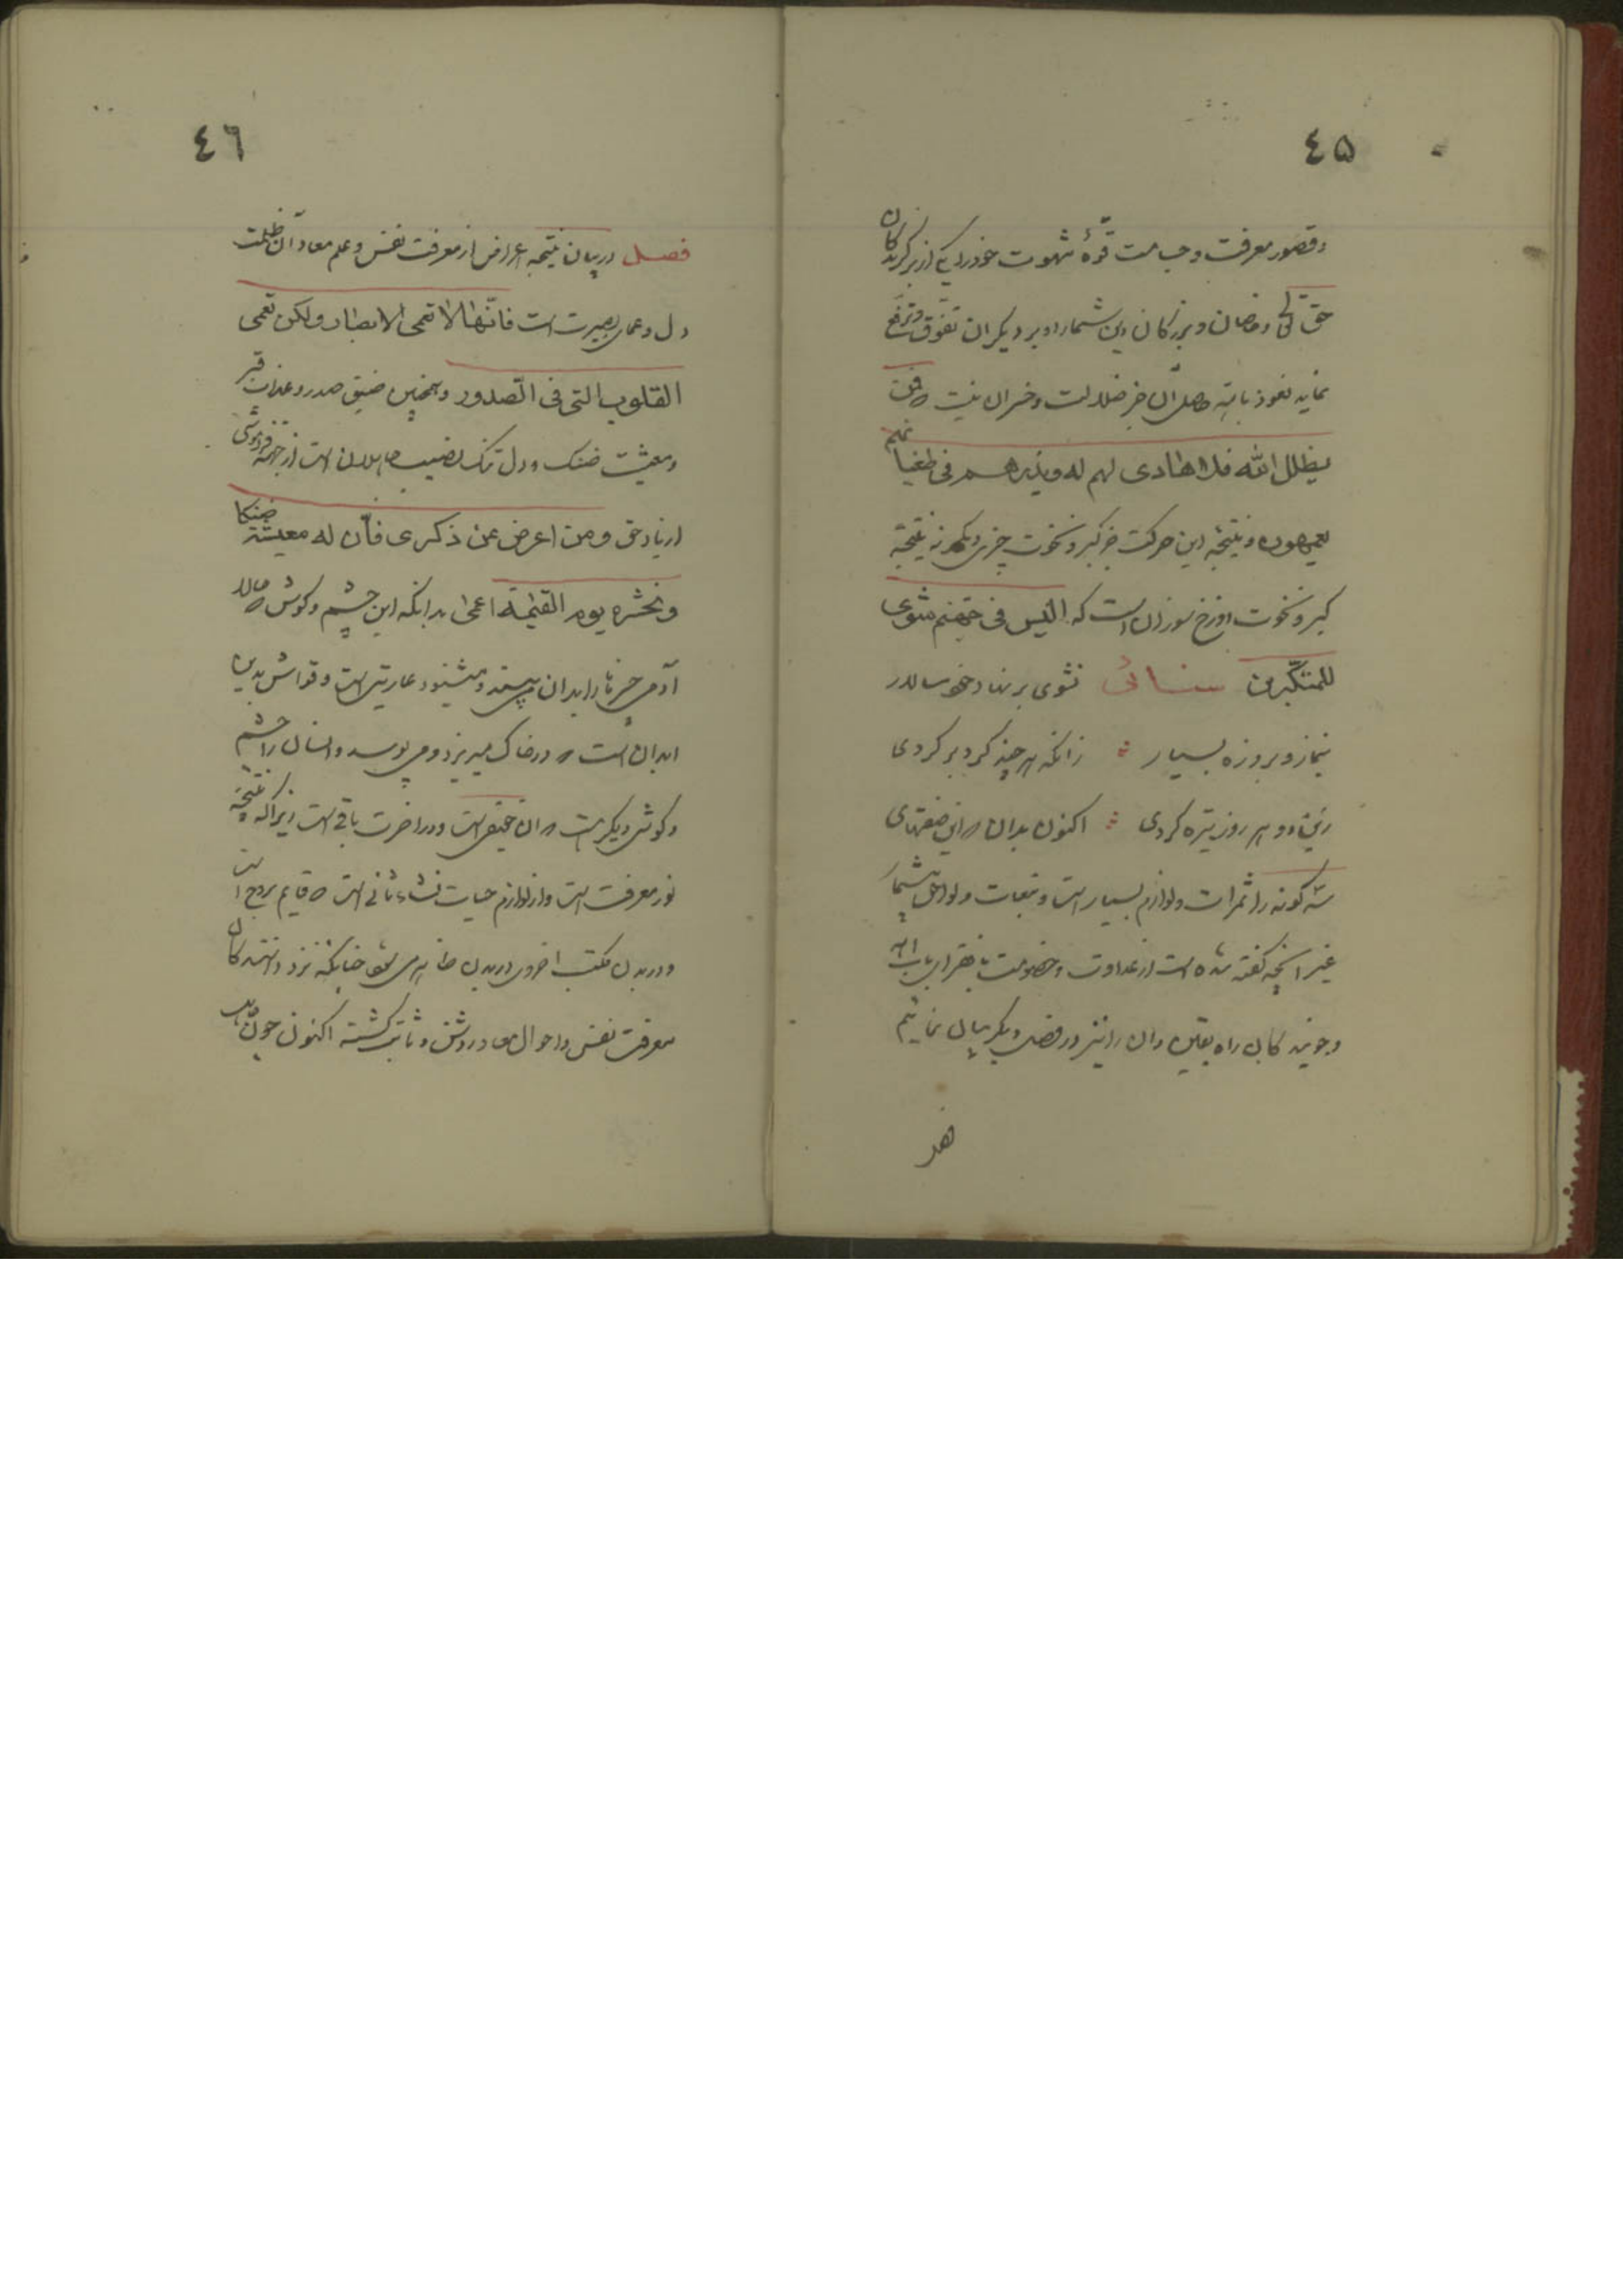 ٤٥
وقصور معرفت وجسامت قوّهٔ شهوت خود را یکی از برگزیدگان
حق تعالی و خاصان و بزرگان دین شمارد و بر دیگران تفوّق و ترفّع
نماید نعوذ بالله حاصل آن جز ضلالت و خسران نیست که من
یظلل الله فلا هادی لهم له ویذرهم فی طغیانهم
یعمهون و نتیجهٔ این حرکت جز کبر و نخوت چیزی دیگر نه نتیجهٔ
کبر و نخوت دوزخ سوزان است که الیس فی جهنم مثوی
للمتکبّرین سنائی نشوی بر نهاد خود سالار
بنماز و بروزه بسیار زانکه هر چند گرد بر گردی
زین دو هر روز تیره گردی اکنون بدان که این صفتهای
سه گونه را ثمرات و لوازم بسیار است و تبعات و لواحق بیشمار
غیر آنچه گفته شده است از عداوت و خصومت با فقرای باب الله
وجویندگان راه یقین و آن را نیز در فصل دیگر بیان نمائیم
فصل
٤٦
فصل در بیان نتیجه اعراض از معرفت نفس و علم معاد و آن ظلمت
دل و عمای بصیرت است فانّها لا تعمی الابصار ولکن تعمی
القلوب التی فی الصّدور و همچنین ضیق صدر و عذاب قبر
و معیشت ضنک و دل تنگ نصیب جاهلان است از جهة فراموشی
از یاد حق و من اعرض عن ذکری فانّ له معیشة ضنکا
ونحشره یوم القیٰمة اعمی بدانکه این چشم و گوش که حالا
آدمی چیزها را بدان می‌بیند و میشنود عاریتی است و قوامش بدین
ابدان است که در خاک میریزد و می‌پوسد و انسان را چشم
و گوش دیگر هست که آن حقیقی است و در آخرت باقی است زیرا که نتیجهٔ
نور معرفت است و از لوازم حیات نشاء ثانی است که قایم بروح است
و در بدن مکتسب اخروی در بدن ظاهر می شود چنانکه نزد دانندگان
معرفت نفس و احوال معاد روشن و ثابت گشته اکنون چون